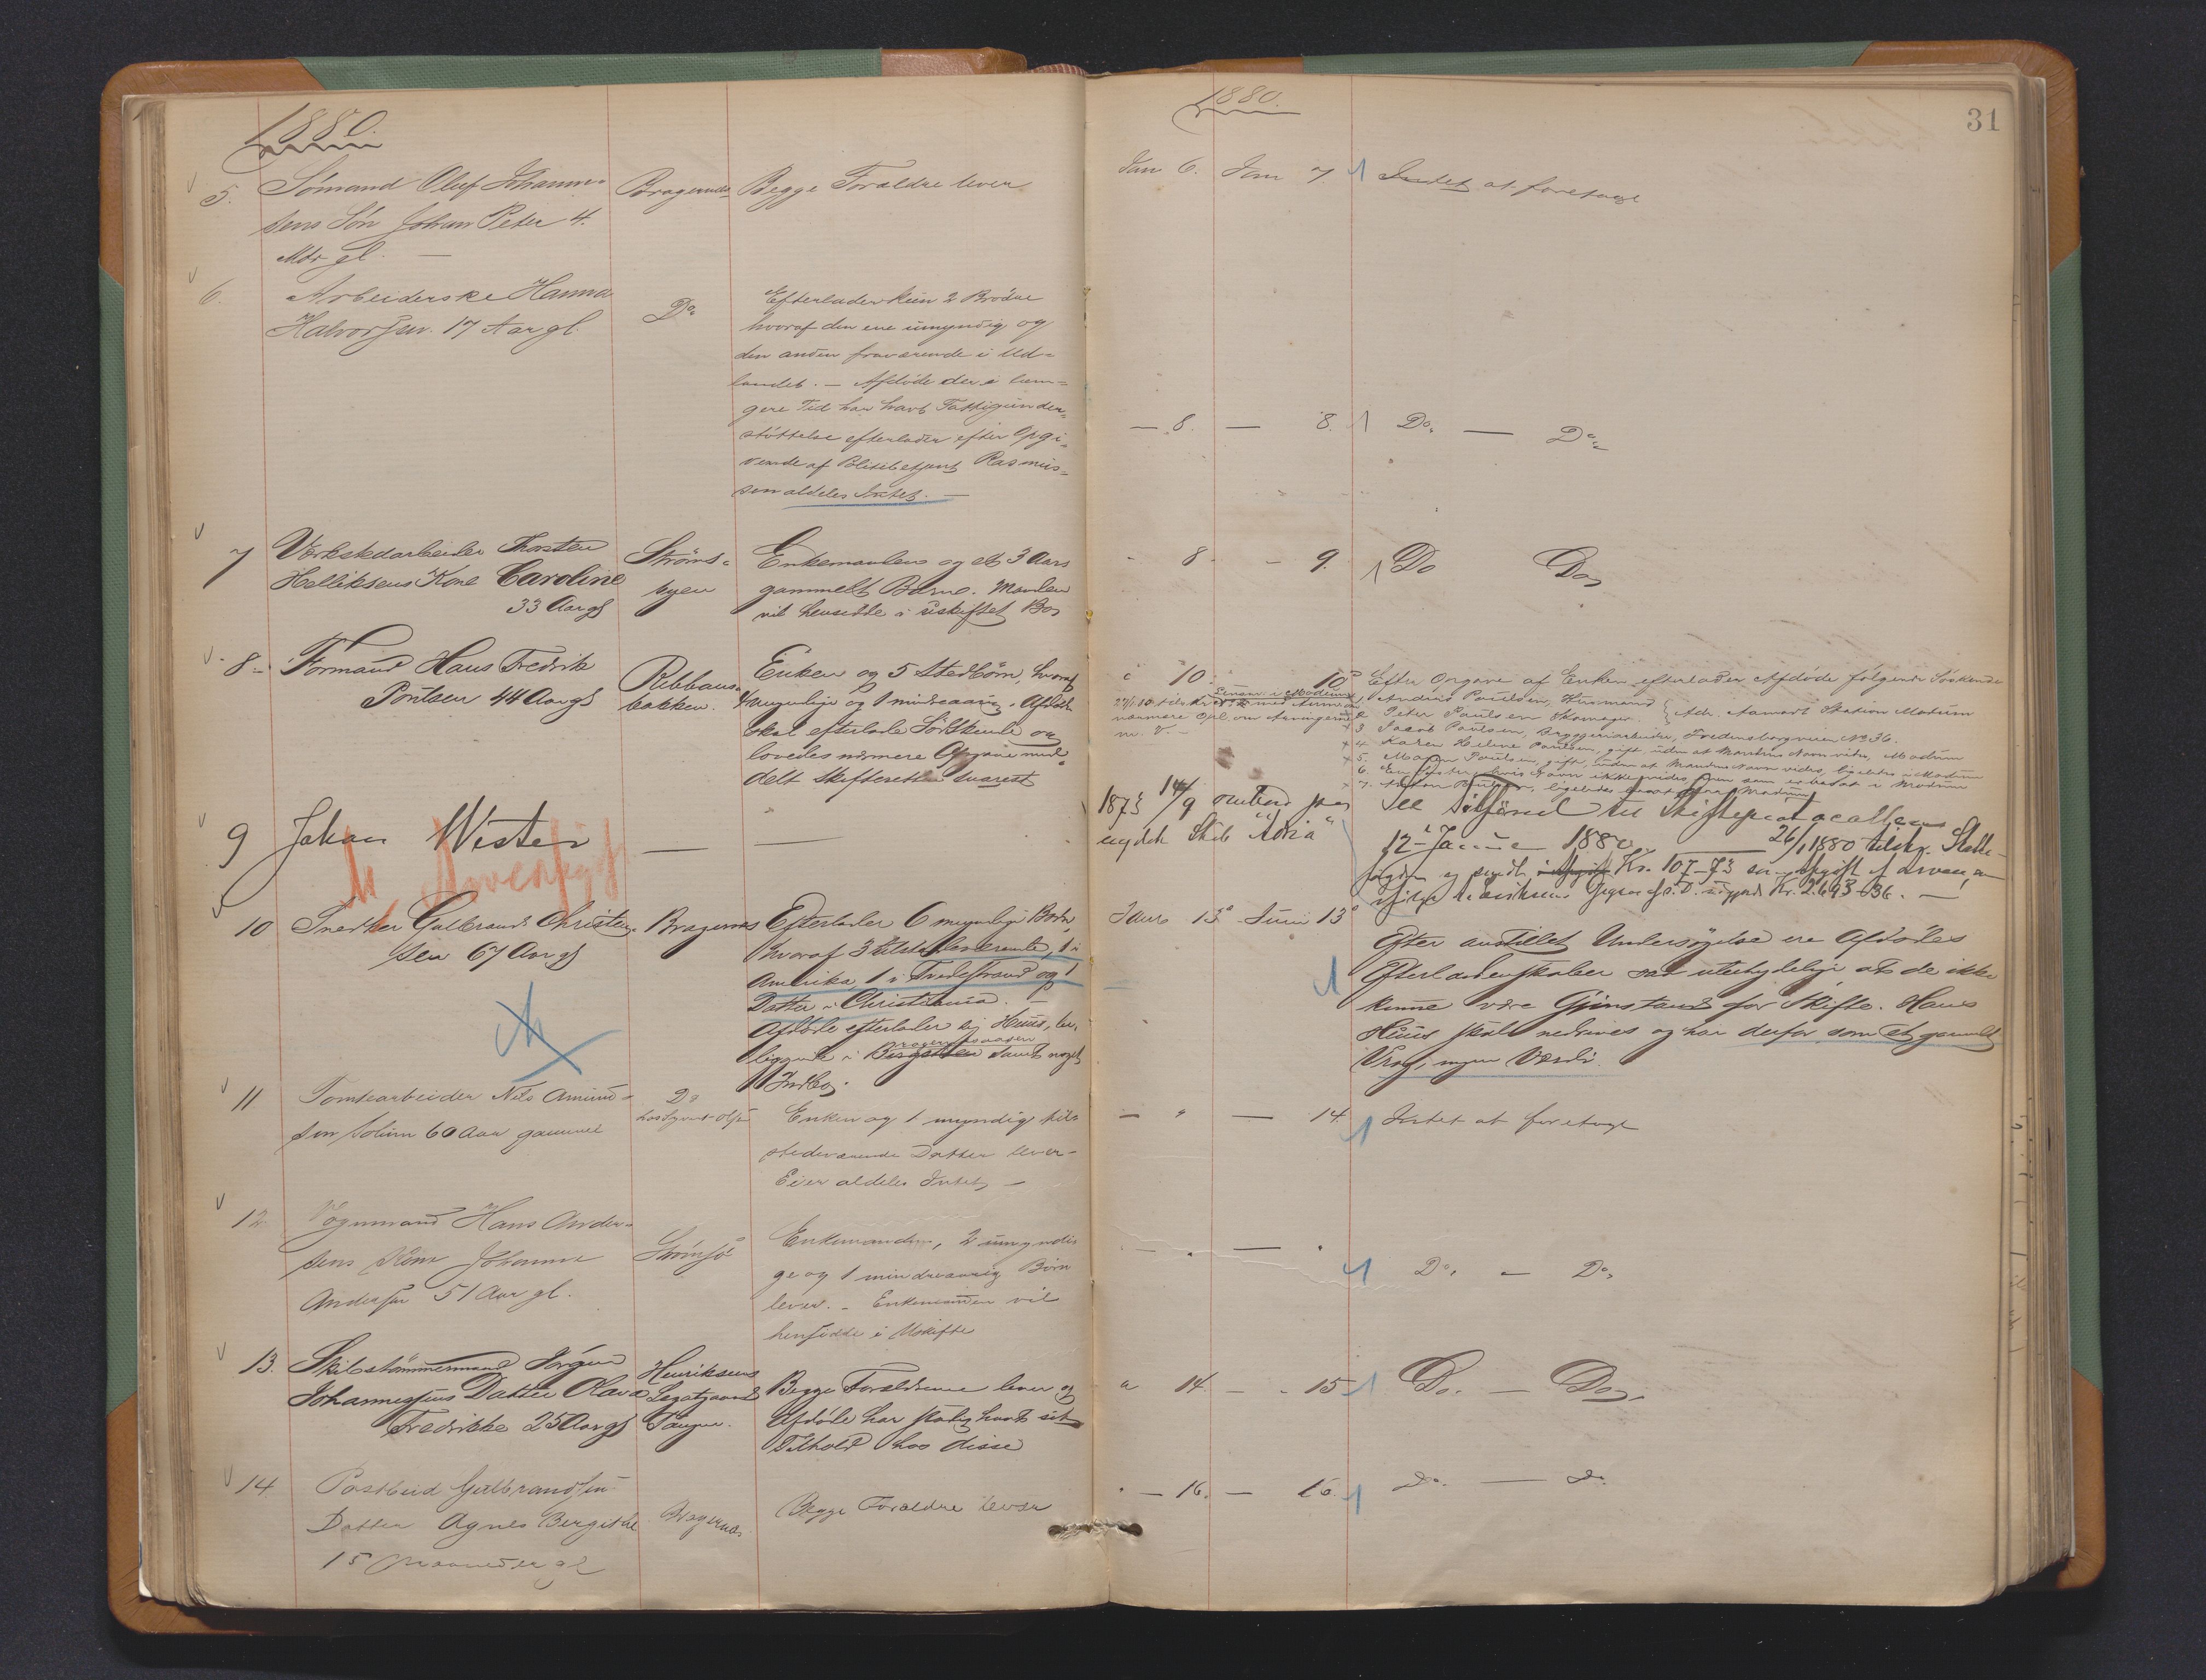 1880.
5. Sömand Oluf Johann-
sens Sön Johan Peter 4.
Mdr gl. —
Bragernæs
Begge Forældre lever
6. Arbeiderske Hanna
Halvorsen. 17 Aar gl.
Do
Efterlader kun 2 Brödre
hvoraf den ene umyndig og
den anden fraværende i Ud-
landet. — Afdöde der i læn-
gere Tid har havt Fattigunder-
støttelse efterlader efter Opgi-
vende af Politibetjent Rasmus-
sen aldeles Intet. —
7 Værkstedarbeider Thorsten
Helliksens Kone Caroline
33 Aar gl
Ströms-
Enkemanden og et 3 Aars
gammelt Barn. Manden
vil hensidde i uskiftet Bo
8 Formand Hans Fredrik
44 Aar gl
bakken.
Enken og 5 Stedbörn, hvoraf
4 myndige og 1 mindreaarig. Afdöde
skal efterlade Södskende og
lovedes nærmere Opgave med-
delt Skifteretten snarest
9 Johan Wister
— —
10 Snedker Gulbrand Christen-
sen 67 Aar gl
Bragernæs
Efterlader 6 myndige Börn,
hvoraf 3 tilstedeværende, 1 i
Amerika, 1 i Tvedestrand og 1
Datter i Christiania. —
Afdöde efterlader sig Huus, be-
liggende i samt noget
Indbo.
11 Tomtearbeider Nils Amund-
sen Solum 60 Aar gammel
Do
Enken og 1 myndig til-
stedeværende Datter lever.
Eier aldeles Intet —
12 Vognmand Hans Ander-
sens Kone Johanne
Andersen 51 Aar gl.
Strömsö
Enkemanden, 2 umyndi-
ge og 1 mindreaarig Börn
lever. — Enkemanden vil
hensidde i Uskifte
13. Skibstömmermand Jörgen
Johannessens Datter Olava
Fredrikke 25 Aar gl
Henriksens
Legatgaard
Tangen.
Begge Forældrene lever og
Afdöde har stadig havt sit
Tilhold hos disse
14 Gulbrandsens
Datter Agnes Bergithe
15 Maaneder gl
Bragernæs
Begge Forældre lever
1880.
31
Jan 6. Jan 7 Intet at foretage
— 8. — 8. Do. — Do.
- 8 - - 9. Do Do
10. 10 Efter Opgave af Enken efterlader Afdöde fölgende Söskende
1 Anders Paulsen, Husmand
2 Peter Paulsen Skomager. Adr. Aamodt Station Modum
3 Jacob Paulsen, Bryggeriarbeider, Fredensborgveien No 36.
4. Karen Helene Paulsen, gift, uden at Mandens Navn vides, Modum
5. Maren Paulsen, gift, uden at Mandens Navn vides, ligeledes i Modum
6. En Söster, hvis Navn ikke vides, men som er bosat i Modum
7. Anton Paulsen, ligeledes bosat paa Modum
1873 14/9 ombord paa
engelsk Skib "Adria"
Se Tilförsel til Skifteprotocollen
12 Januar 1880. 26/1 1880 tilskr. Stift-
Kr. 107-73 Afgift af Arven,
Kr. 2.693-36. —
Janr 13 Janr 13
Efter anstillet Undersögelse ere Afdödes
Efterladenskaber saa ubetydelige at de ikke
kunne være Gjenstand for Skifte. Hans
Huus skal nedrives og har derfor som et gammelt
Vrag, ingen Værdi.
— " — 14. Intet at foretage
— " — " Do. — Do.
" 14. — - 15 Do. — Do.
" — 16. — 16. Do. — Do.